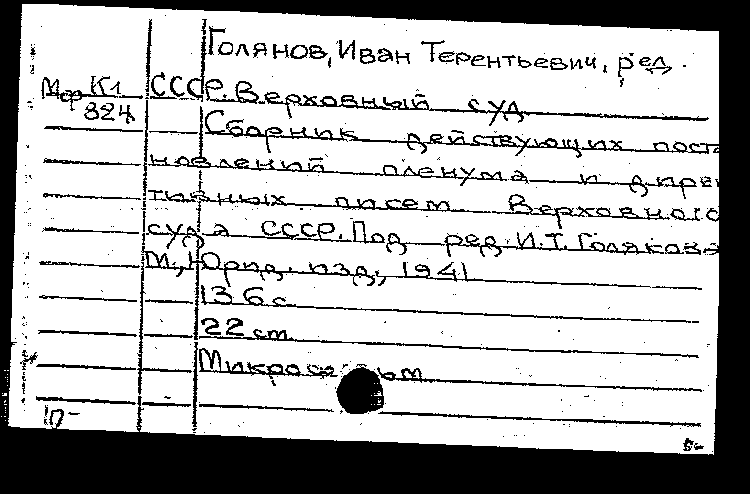 Голянов, Иван Терентьевич, ред.
Мф К1 СССР. Верховный суд
824
Сборник действующих поста
новлений пленума и дирек
тивных писем Верховного
суда СССР. Под ред. И.Т. Голякова
М., Юрид. изд., 1941
136 с.
22 ст
10-